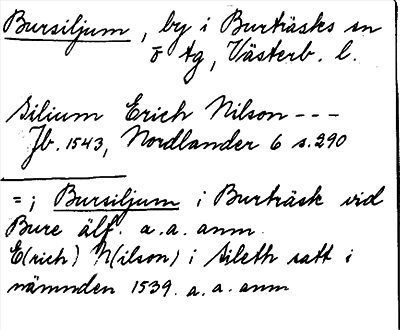 Bursiljum, by i Burträsks sn
o tg, Västerb. l.
Silium Erich Nilson ---
Jb. 1543, Nordlander 6 s. 290
= ; Bursiljum i Burträsk vid
Bure älf. a. a. anm.
E(rich) N(ilson) i Sileth satt i
nämnden 1539. a. a. anm